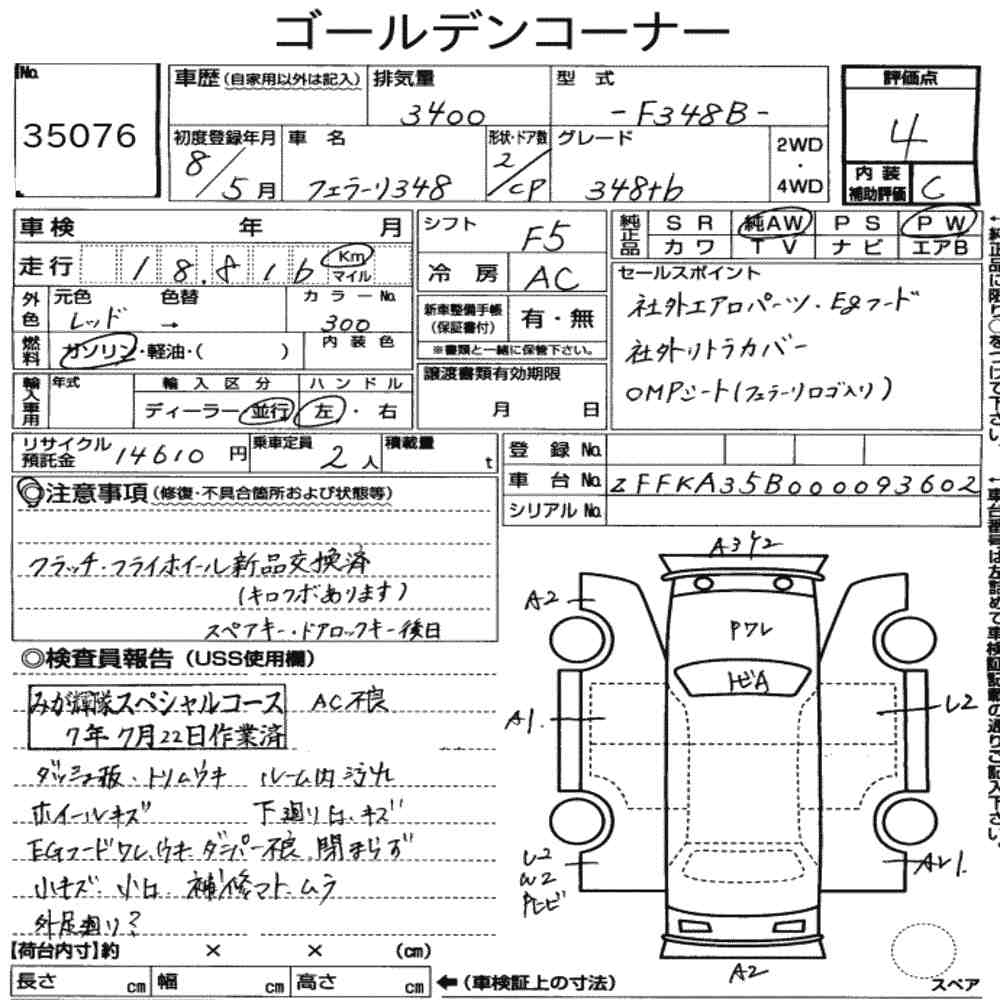 ゴールデンコーナー
No.
35076
車歴(自家用以外は記入)
排気量
3400
型 式
-F348B-
評価点
4
内装
補助評価
C
初度登録年月
8/5月
車 名
フェラーリ348
形状・ドア数
2/CP
グレード
348tb
2WD
・
4WD
車検 年 月
走行 18,816 Km マイル
シフト
F5
冷 房
AC
純正品
S R 純AW P S P W
カワ TV ナビ エアB
外色
元色 色替 カラーNo.
レッド → 300
燃料
ガソリン・軽油・( )
内装色
新車整備手帳
(保証書付)
有・無
※書類と一緒に保管下さい。
セールスポイント
社外エアロパーツ・Egフード
社外リトラカバー
OMPシート(フェラーリロゴ入り)
輸入車用
年式
輸入区分
ハンドル
ディーラー・並行
左・右
譲渡書類有効期限
月 日
リサイクル
預託金
14610円
乗車定員
2人
積載量
t
登 録 No.
車 台 No. ZFFKA35B000093602
シリアル No.
◎注意事項(修復・不具合箇所および状態等)
クラッチ・フライホイール新品交換済
(キロクボあります)
スペアキー・ドアロックキー後日
◎検査員報告(USS使用欄)
みが輝隊スペシャルコース
7年7月22日作業済
AC不良
ダッシュ板・トリムウキ ルーム内汚れ
ホイールキズ 下廻りサビ、キズ
EGフードワレ、ウキ、ダンパー不良、閉まらず
小キズ、小凹、補修マト、ムラ
外足廻り?
【荷台内寸】約 × × (cm)
長さ cm 幅 cm 高さ cm
←(車検証上の寸法)
A3Y2
A2
Pワレ
トビA
A1
L2
U2
W2
A2
スペア
↑純正品に限り○をつけて下さい。
↑車台番号は左詰めで車検証記載の通りご記入下さい。